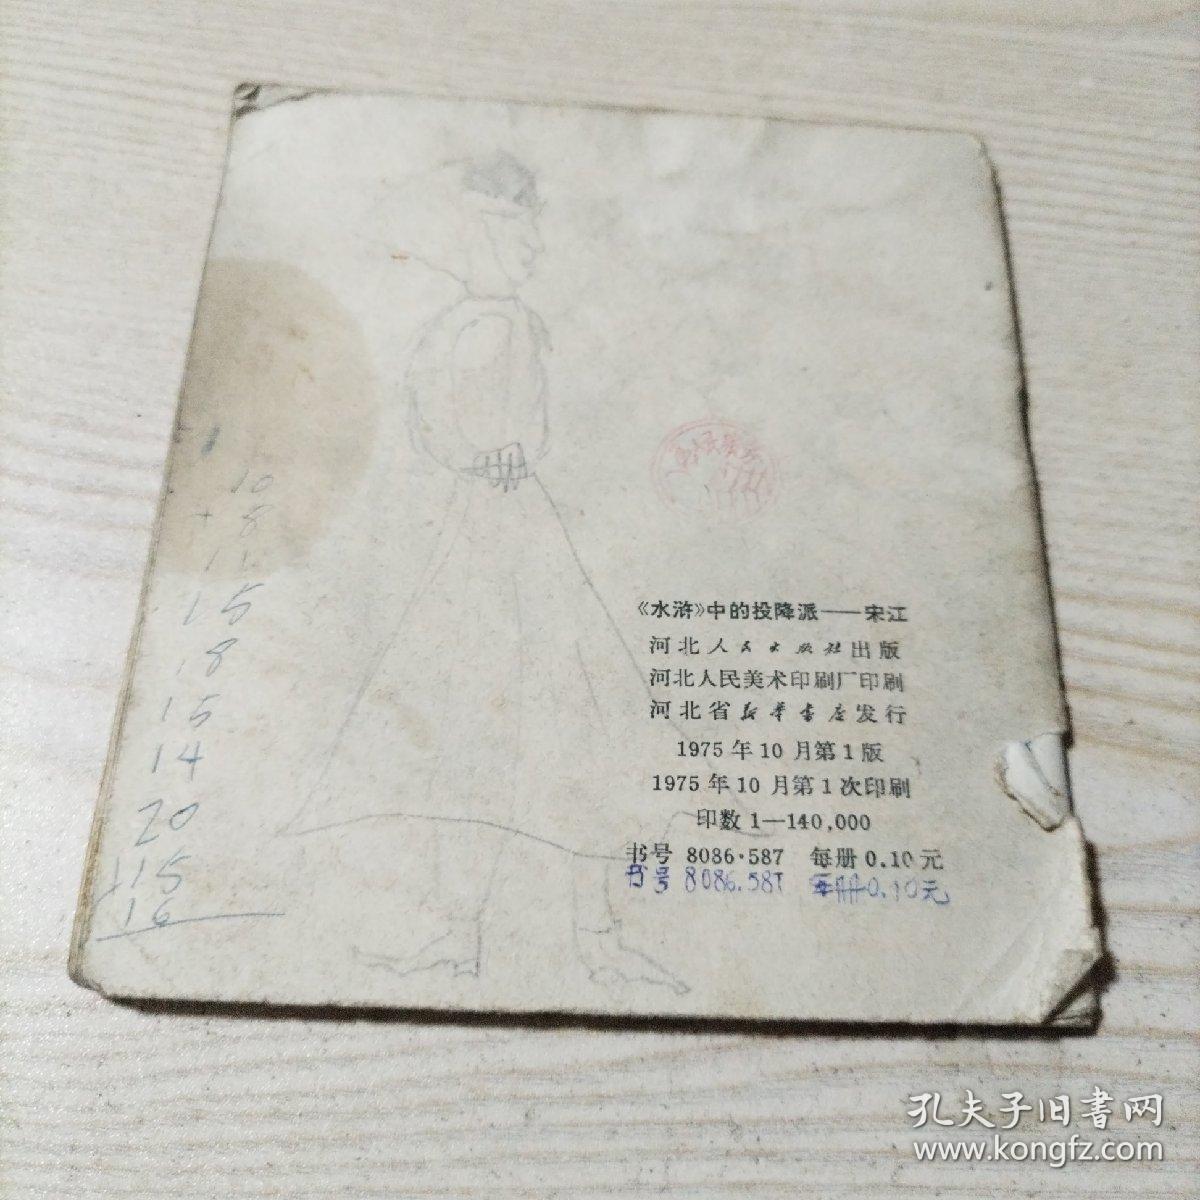 10
+ 8
15
18
15
14
20
+15
16
《水浒》中的投降派——宋江
河北人民出版社出版
河北人民美术印刷厂印刷
河北省新华书店发行
1975年10月第1版
1975年10月第1次印刷
印数1—140,000
书号 8086·587 每册0.10元
书号 8086.587 每册0.10元
孔夫子旧书网
www.kongfz.com